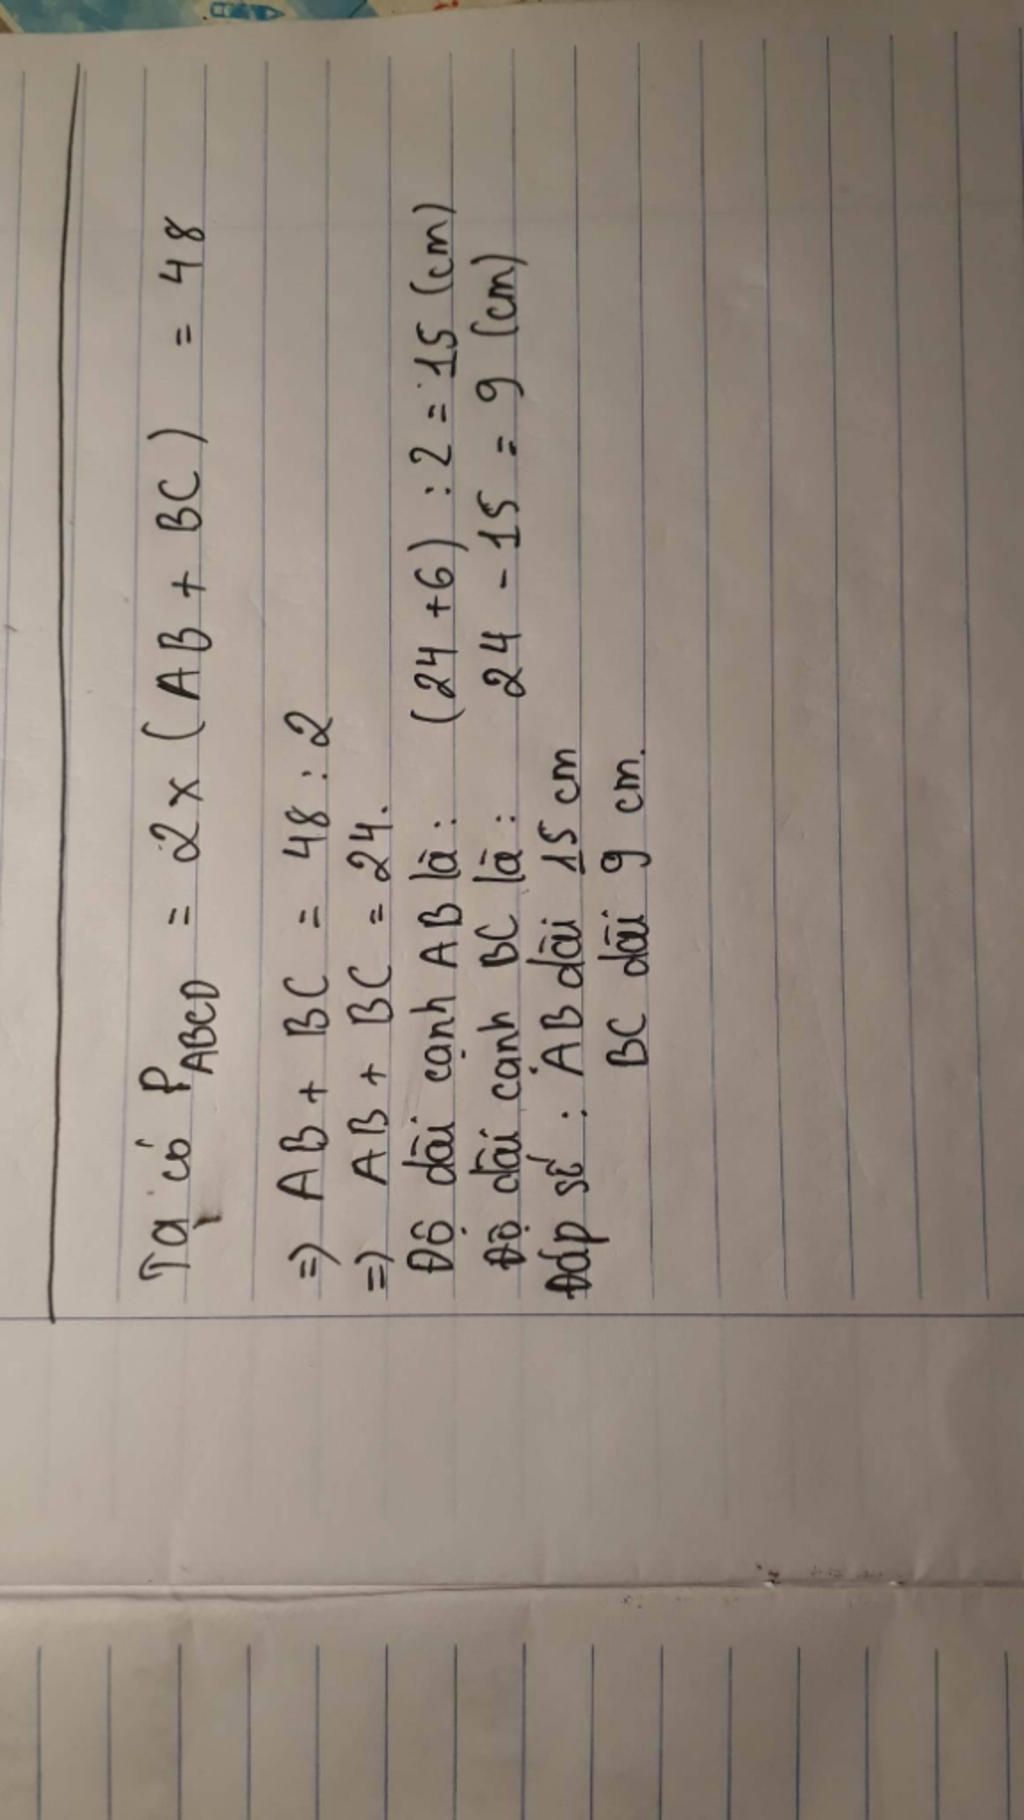 Ta có P ABCD = 2 x (AB + BC) = 48
=) AB + BC = 48 : 2
=) AB + BC = 24.
Độ dài cạnh AB là: (24 + 6) : 2 = 15 (cm)
Độ dài cạnh BC là: 24 - 15 = 9 (cm)
Đáp số: AB dài 15 cm
BC dài 9 cm.